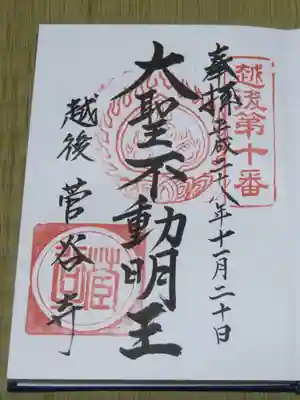 越後第十番
奉拝 平成二十八年十一月二十日
大聖不動明王
越後 菅谷寺